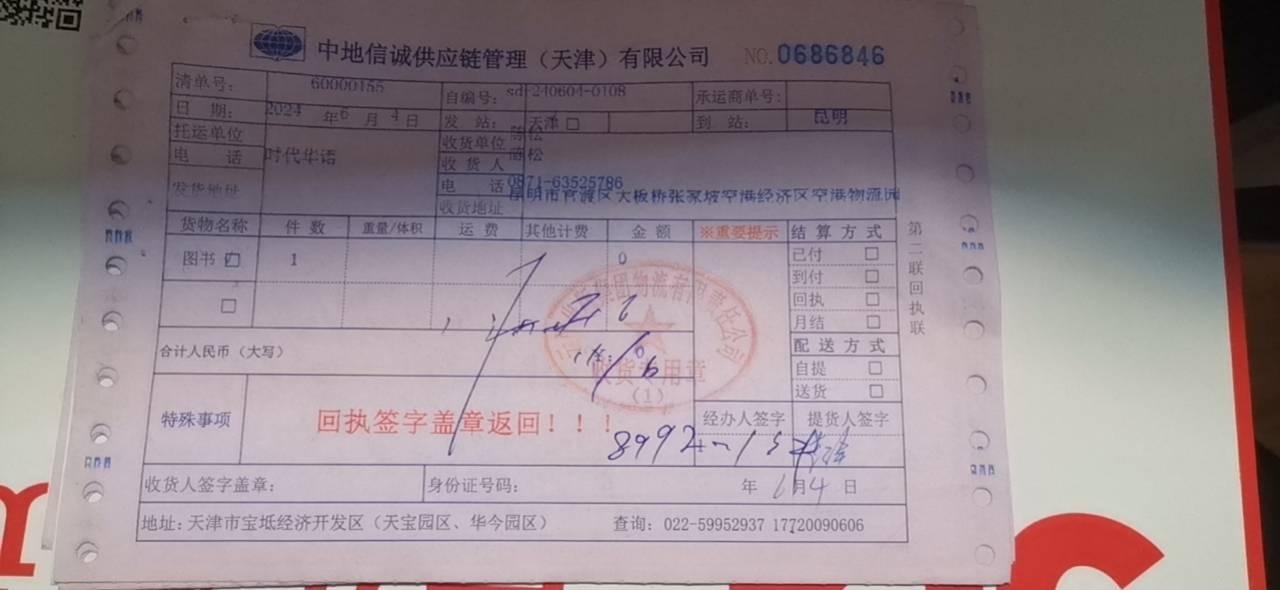 中地信诚供应链管理（天津）有限公司 NO.0686846
清单号: 60000155 自编号: sd-240604-0108 承运商单号:
日 期: 2024 年 6 月 4 日 发 站: 天津 □ 到 站: 昆明
托运单位 时代华语 收货单位 陈松
电 话 收 货 人 陈松
发货地址 电 话 0871-63525786
收货地址 昆明市官渡区大板桥张家坡空港经济区空港物流园
货物名称 件 数 重量/体积 运 费 其他计费 金 额 ※重要提示 结 算 方 式
图书 1 0 已付 □
□ 到付 □
回执 □
月结 □
合计人民币（大写） 0 配 送 方 式
自提 □
送货 □
收货专用章
（1）
特殊事项 回执签字盖章返回！！！ 经办人签字 提货人签字
8992
收货人签字盖章: 身份证号码: 年 6 月 4 日
地址: 天津市宝坻经济开发区（天宝园区、华今园区） 查询: 022-59952937 17720090606
第二联回执联